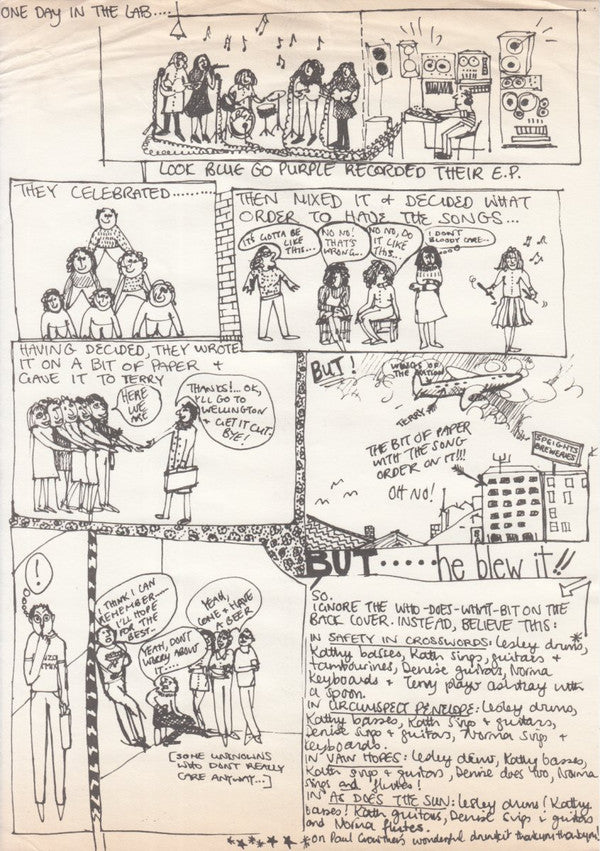 ONE DAY IN THE LAB.....
LOOK BLUE GO PURPLE RECORDED THEIR E.P.
THEY CELEBRATED..........
THEN MIXED IT & DECIDED WHAT
ORDER TO HAVE THE SONGS...
IT'S GOTTA BE
LIKE
THIS...
NO NO!
THAT'S
WRONG...
NO NO, DO
IT LIKE
THIS...
I DON'T
BLOODY CARE..
HAVING DECIDED, THEY WROTE
IT ON A BIT OF PAPER +
GAVE IT TO TERRY
HERE
WE
ARE
THANKS!... OK,
I'LL GO TO
WELLINGTON
& GET IT CUT.
BYE!
BUT!
WINGS OF
THE NATION
TERRY
THE BIT OF PAPER
WITH THE SONG
ORDER ON IT!!!
OH NO!
SPEIGHTS
BREWERIES
BUT.....he blew it!!
!
I THINK I CAN
REMEMBER.....
I'LL HOPE
FOR THE
BEST..
YEAH, DON'T
WORRY ABOUT
IT....
YEAH,
COME & HAVE
A BEER
[SOME UNKNOWNS
WHO DON'T REALLY
CARE ANYWAY...]
SO.
IGNORE THE WHO-DOES-WHAT-BIT ON THE
BACK COVER. INSTEAD, BELIEVE THIS:
IN SAFETY IN CROSSWORDS: Lesley drums,*
Kathy basses, Kath sings, guitars +
tambourines, Denise guitars, Norma
keyboards & Terry plays ashtray with
a spoon.
IN CIRCUMSPECT PENELOPE: Lesley drums,
Kathy basses, Kath sings & guitars,
Denise sings & guitars, Norma sings +
keyboards.
IN VAIN HOPES: Lesley drums, Kathy basses,
Kath sings & guitars, Denise does too, Norma
sings and flutes!
IN AS DOES THE SUN: Lesley drums! Kathy
basses! Kath guitars, Denise sings & guitars
and Norma flutes.
*on Paul Crowthers wonderful drumkit thankyou thankyou!